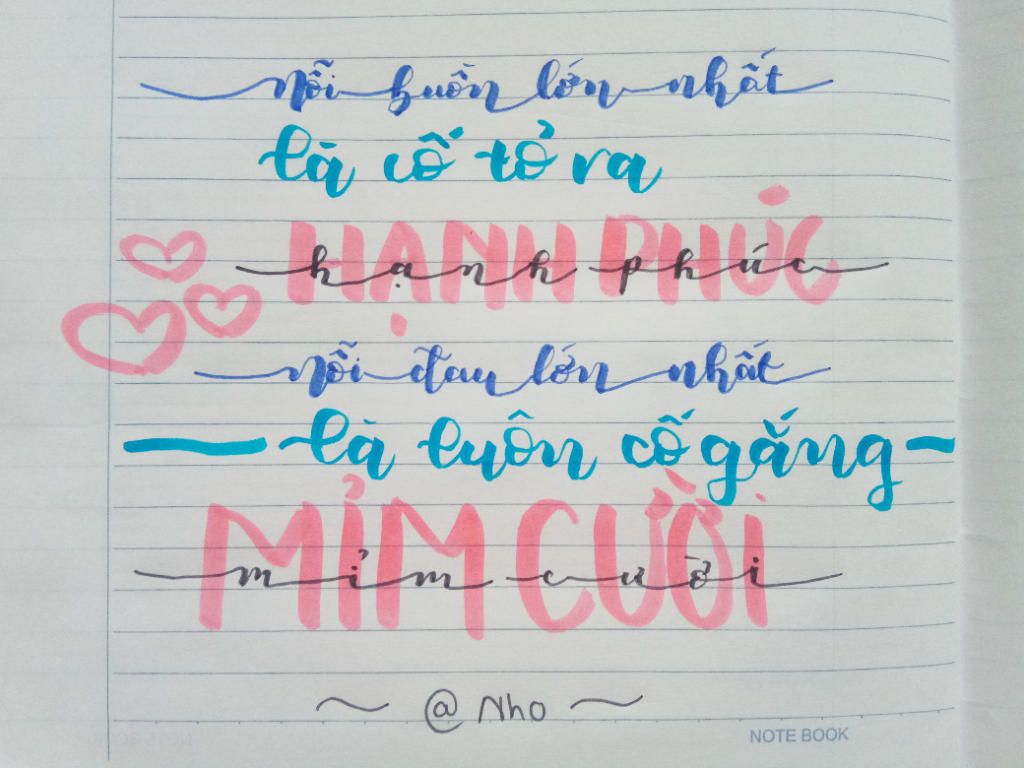 nỗi buồn lớn nhất
là cố tỏ ra
HẠNH PHÚC
hạnh phúc
nỗi đau lớn nhất
là luôn cố gắng
MỈM CƯỜI
mỉm cười
@ Nho
NOTE BOOK